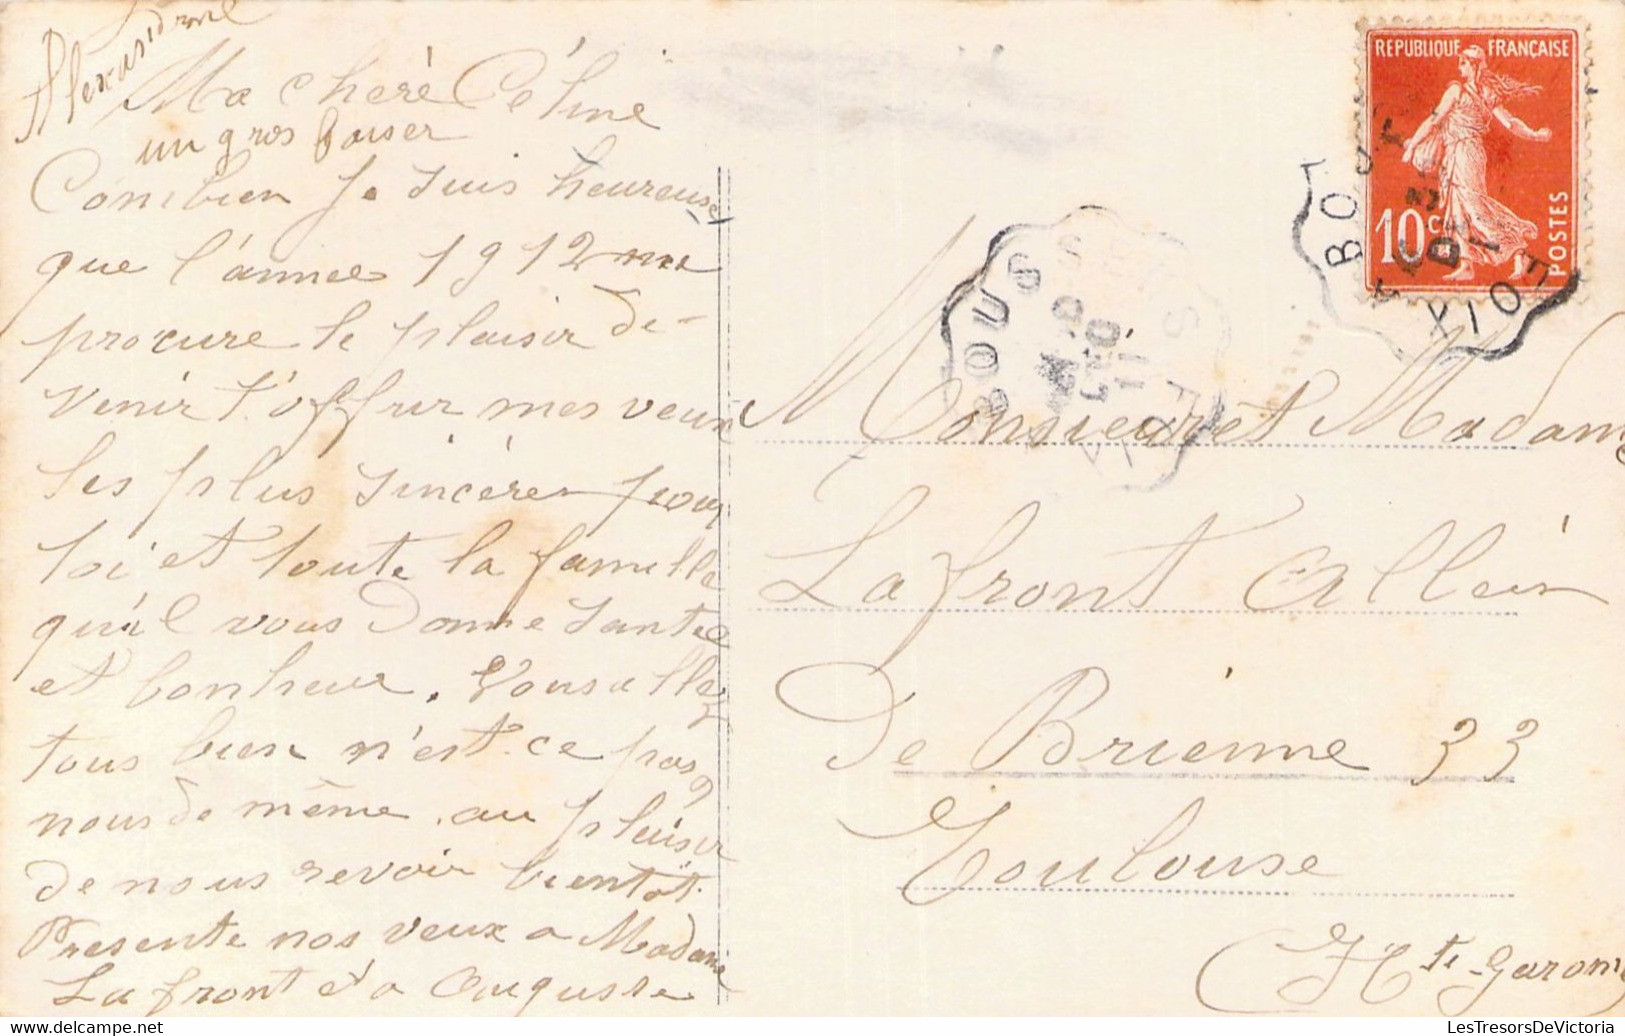 Alexandrine
Ma cheré Céline
un gros baiser
Combien Je suis heureuse
que l'année 1912 me
procure le plaisir de
venir t'offrir mes veux
les plus sincères pour
toi et toute la famille
qu'il vous Donne Santée
et bonheur. Vous allez
tous bien n'est ce pas
nous de même. au plaisir
de nous revoir bientôt.
Presente nos veux a Madame
Lafront et a Auguste
REPUBLIQUE FRANÇAISE
10c
POSTES
BOUSSENS
FOIX
BOU
FOIX
Monsieur et Madame
Lafront Alleé
De Brienne 33
Toulouse
(Hte Garonne
www.delcampe.net
LesTresorsDeVictoria